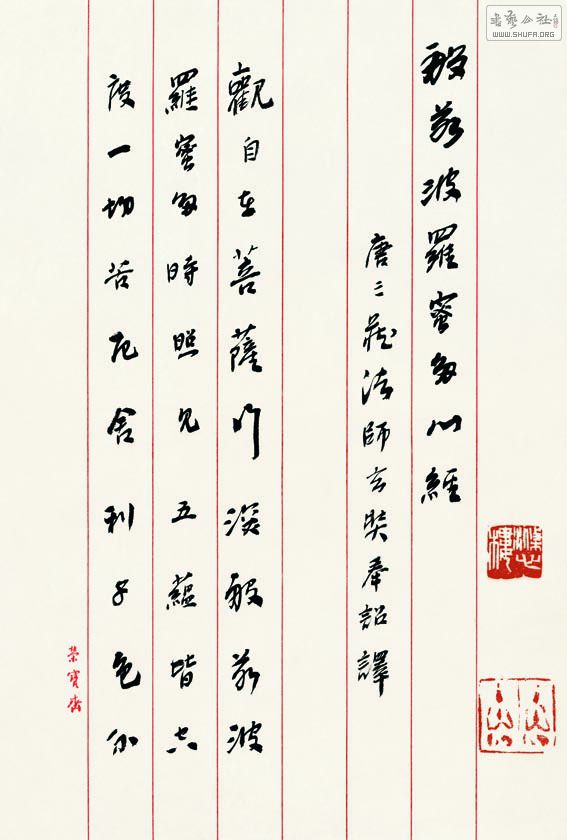 般若波羅蜜多心經
唐三藏法師玄奘奉詔譯
觀自在菩薩行深般若波
羅蜜多時照見五蘊皆空
度一切苦厄舍利子色不
榮寶齋
書藝公社
WWW.SHUFA.ORG